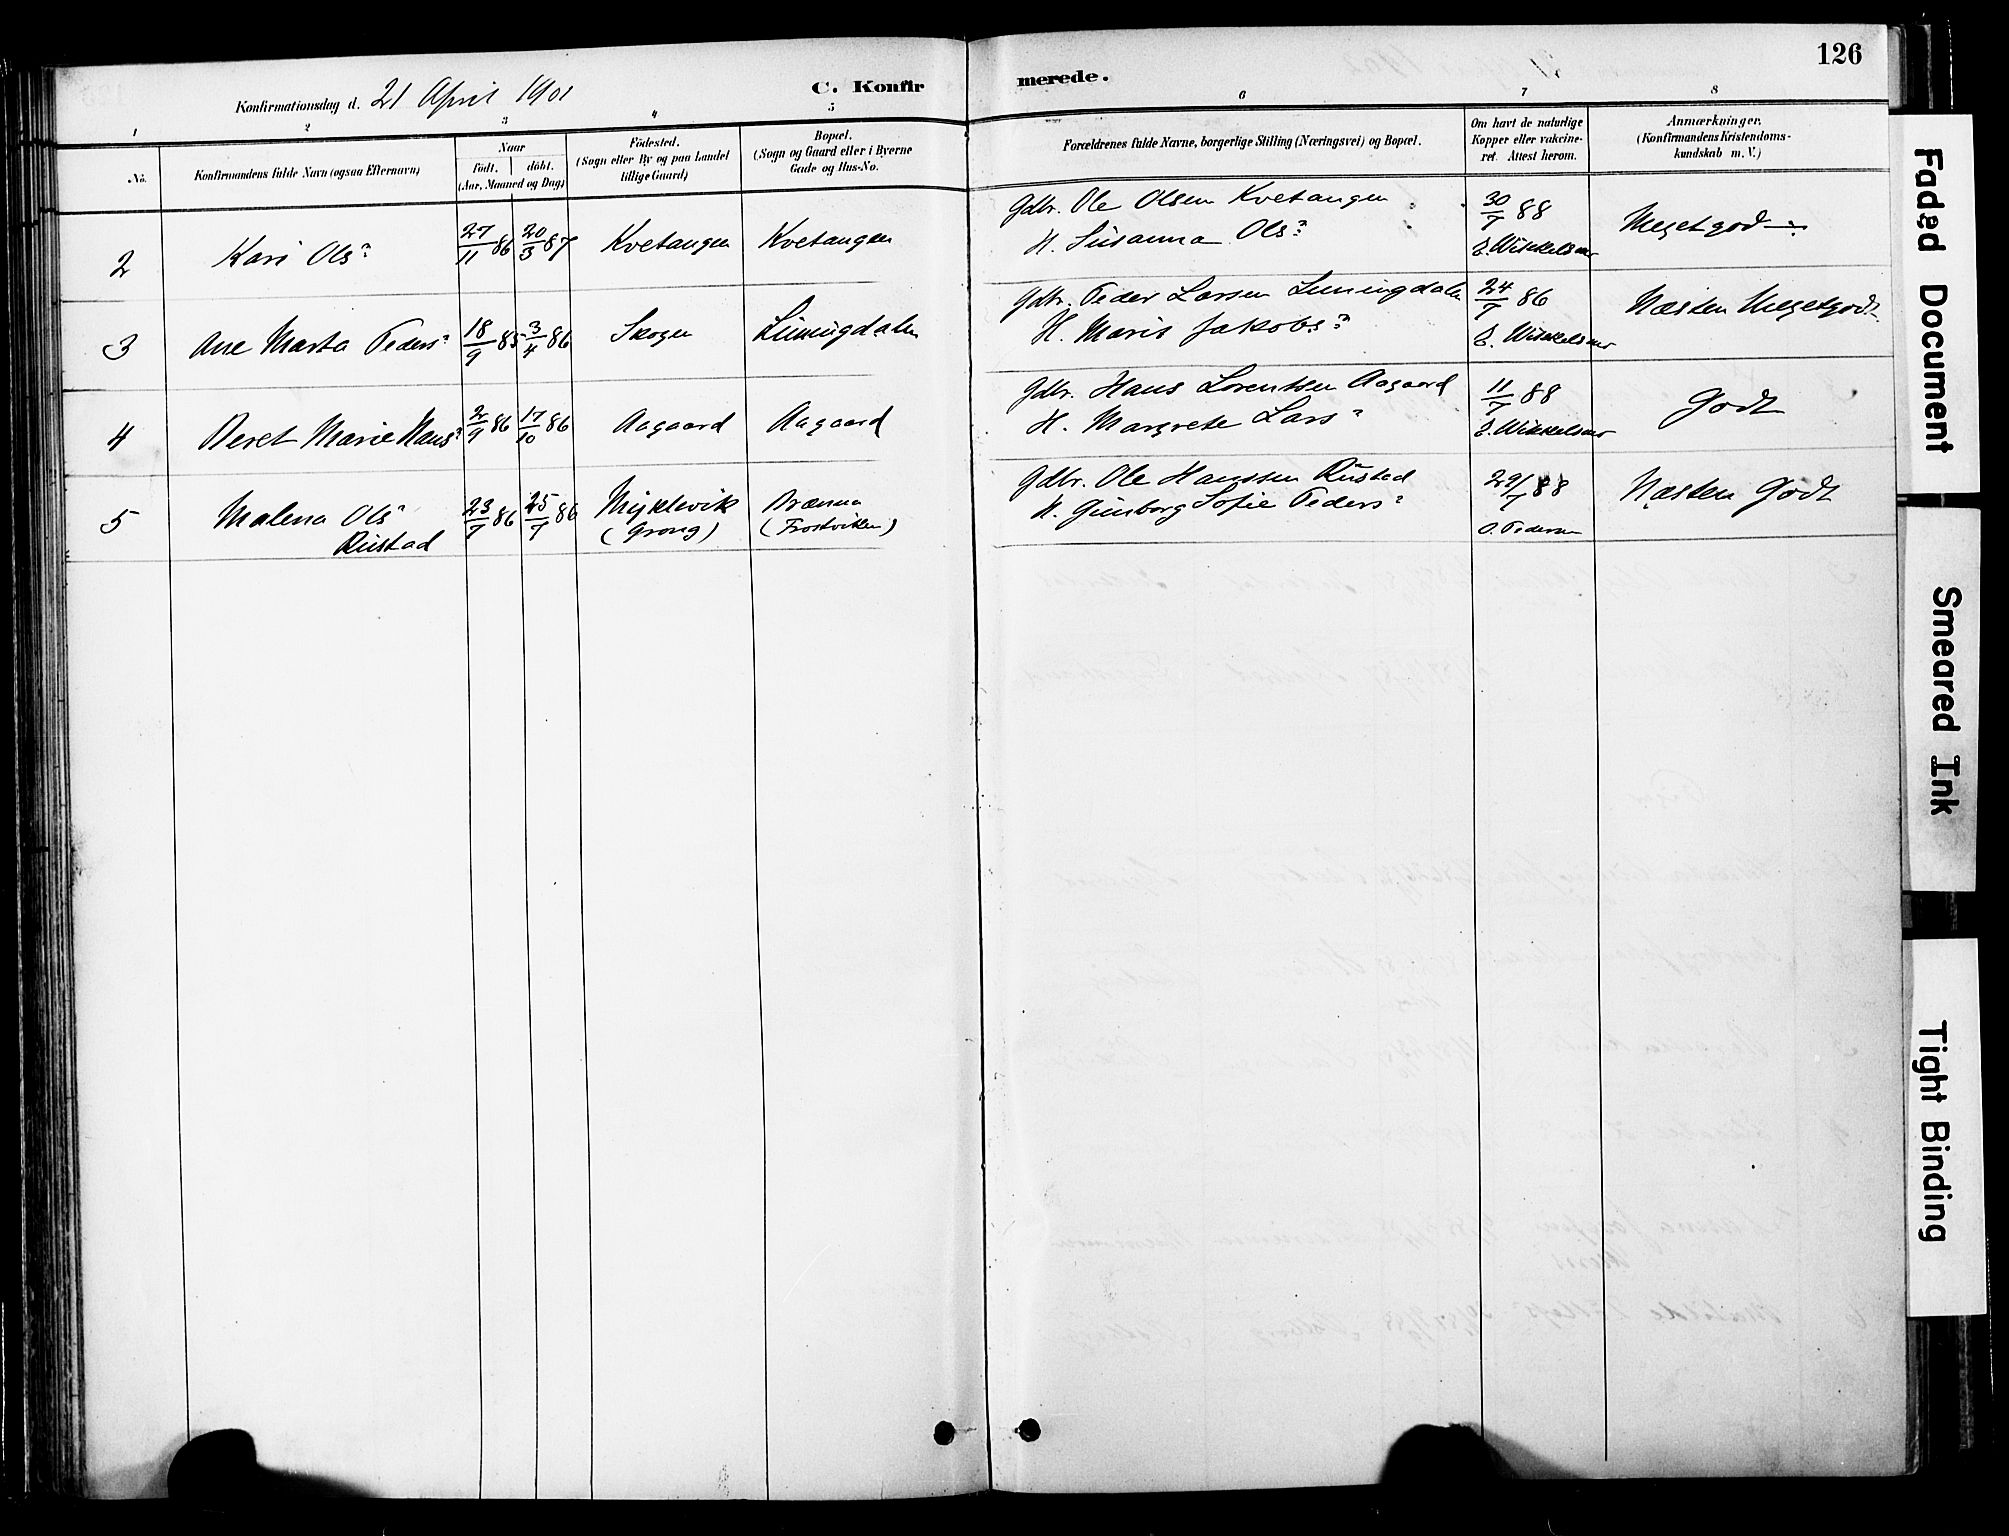 126
Konfirmationsdag d. 21 April 1901
C. Konfirmerede.
1 2 3 4 5 6 7 8
No.
Konfirmandens fulde Navn (ogsaa Efternavn)
Naar
Födt. döbt.
(Aar, Maaned og Dag)
Födested.
(Sogn eller By og paa Landet
tillige Gaard)
Bopæl.
(Sogn og Gaard eller i Byerne
Gade og Hus-No.
Forældrenes fulde Navne, borgerlige Stilling (Næringsvei) og Bopæl.
Om havt de naturlige
Kopper eller vakcine-
ret. Attest herom.
Anmærkninger.
(Konfirmandens Kristendoms-
kundskab m. V.)
2 Kari Olsᵈ 27/11 86 20/3 87 Kvetangen Kvetangen
Gdbr. Ole Olsen Kvetangen
H. Susanna Olsᵈ
30/7 88
Megetgodt
3 Ane Marta Pedersᵈ 18/9 85 3/4 86 Skogen Limingdalen
Gdbr. Peder Larsen Limingdalen
H. Maris Jakobsᵈ
24/7 86
Næsten Megetgodt
4 Beret Marie Hansᵈ 2/9 86 17/10 86 Aagaard Aagaard
Gdbr. Hans Lorentsen Aagaard
H. Margrete Larsᵈ
11/7 88
Godt
5 Malena Olsᵈ
Rustad
23/7 86 25/7 86
Myklevik
(Grong)
Brænna
(Frostviken)
Gdbr. Ole Hanssen Rustad
H. Gunborg Sofie Pedersᵈ
29/7 88
O. Pedersen
Næsten Godt
Faded Document
Smeared Ink
Tight Binding